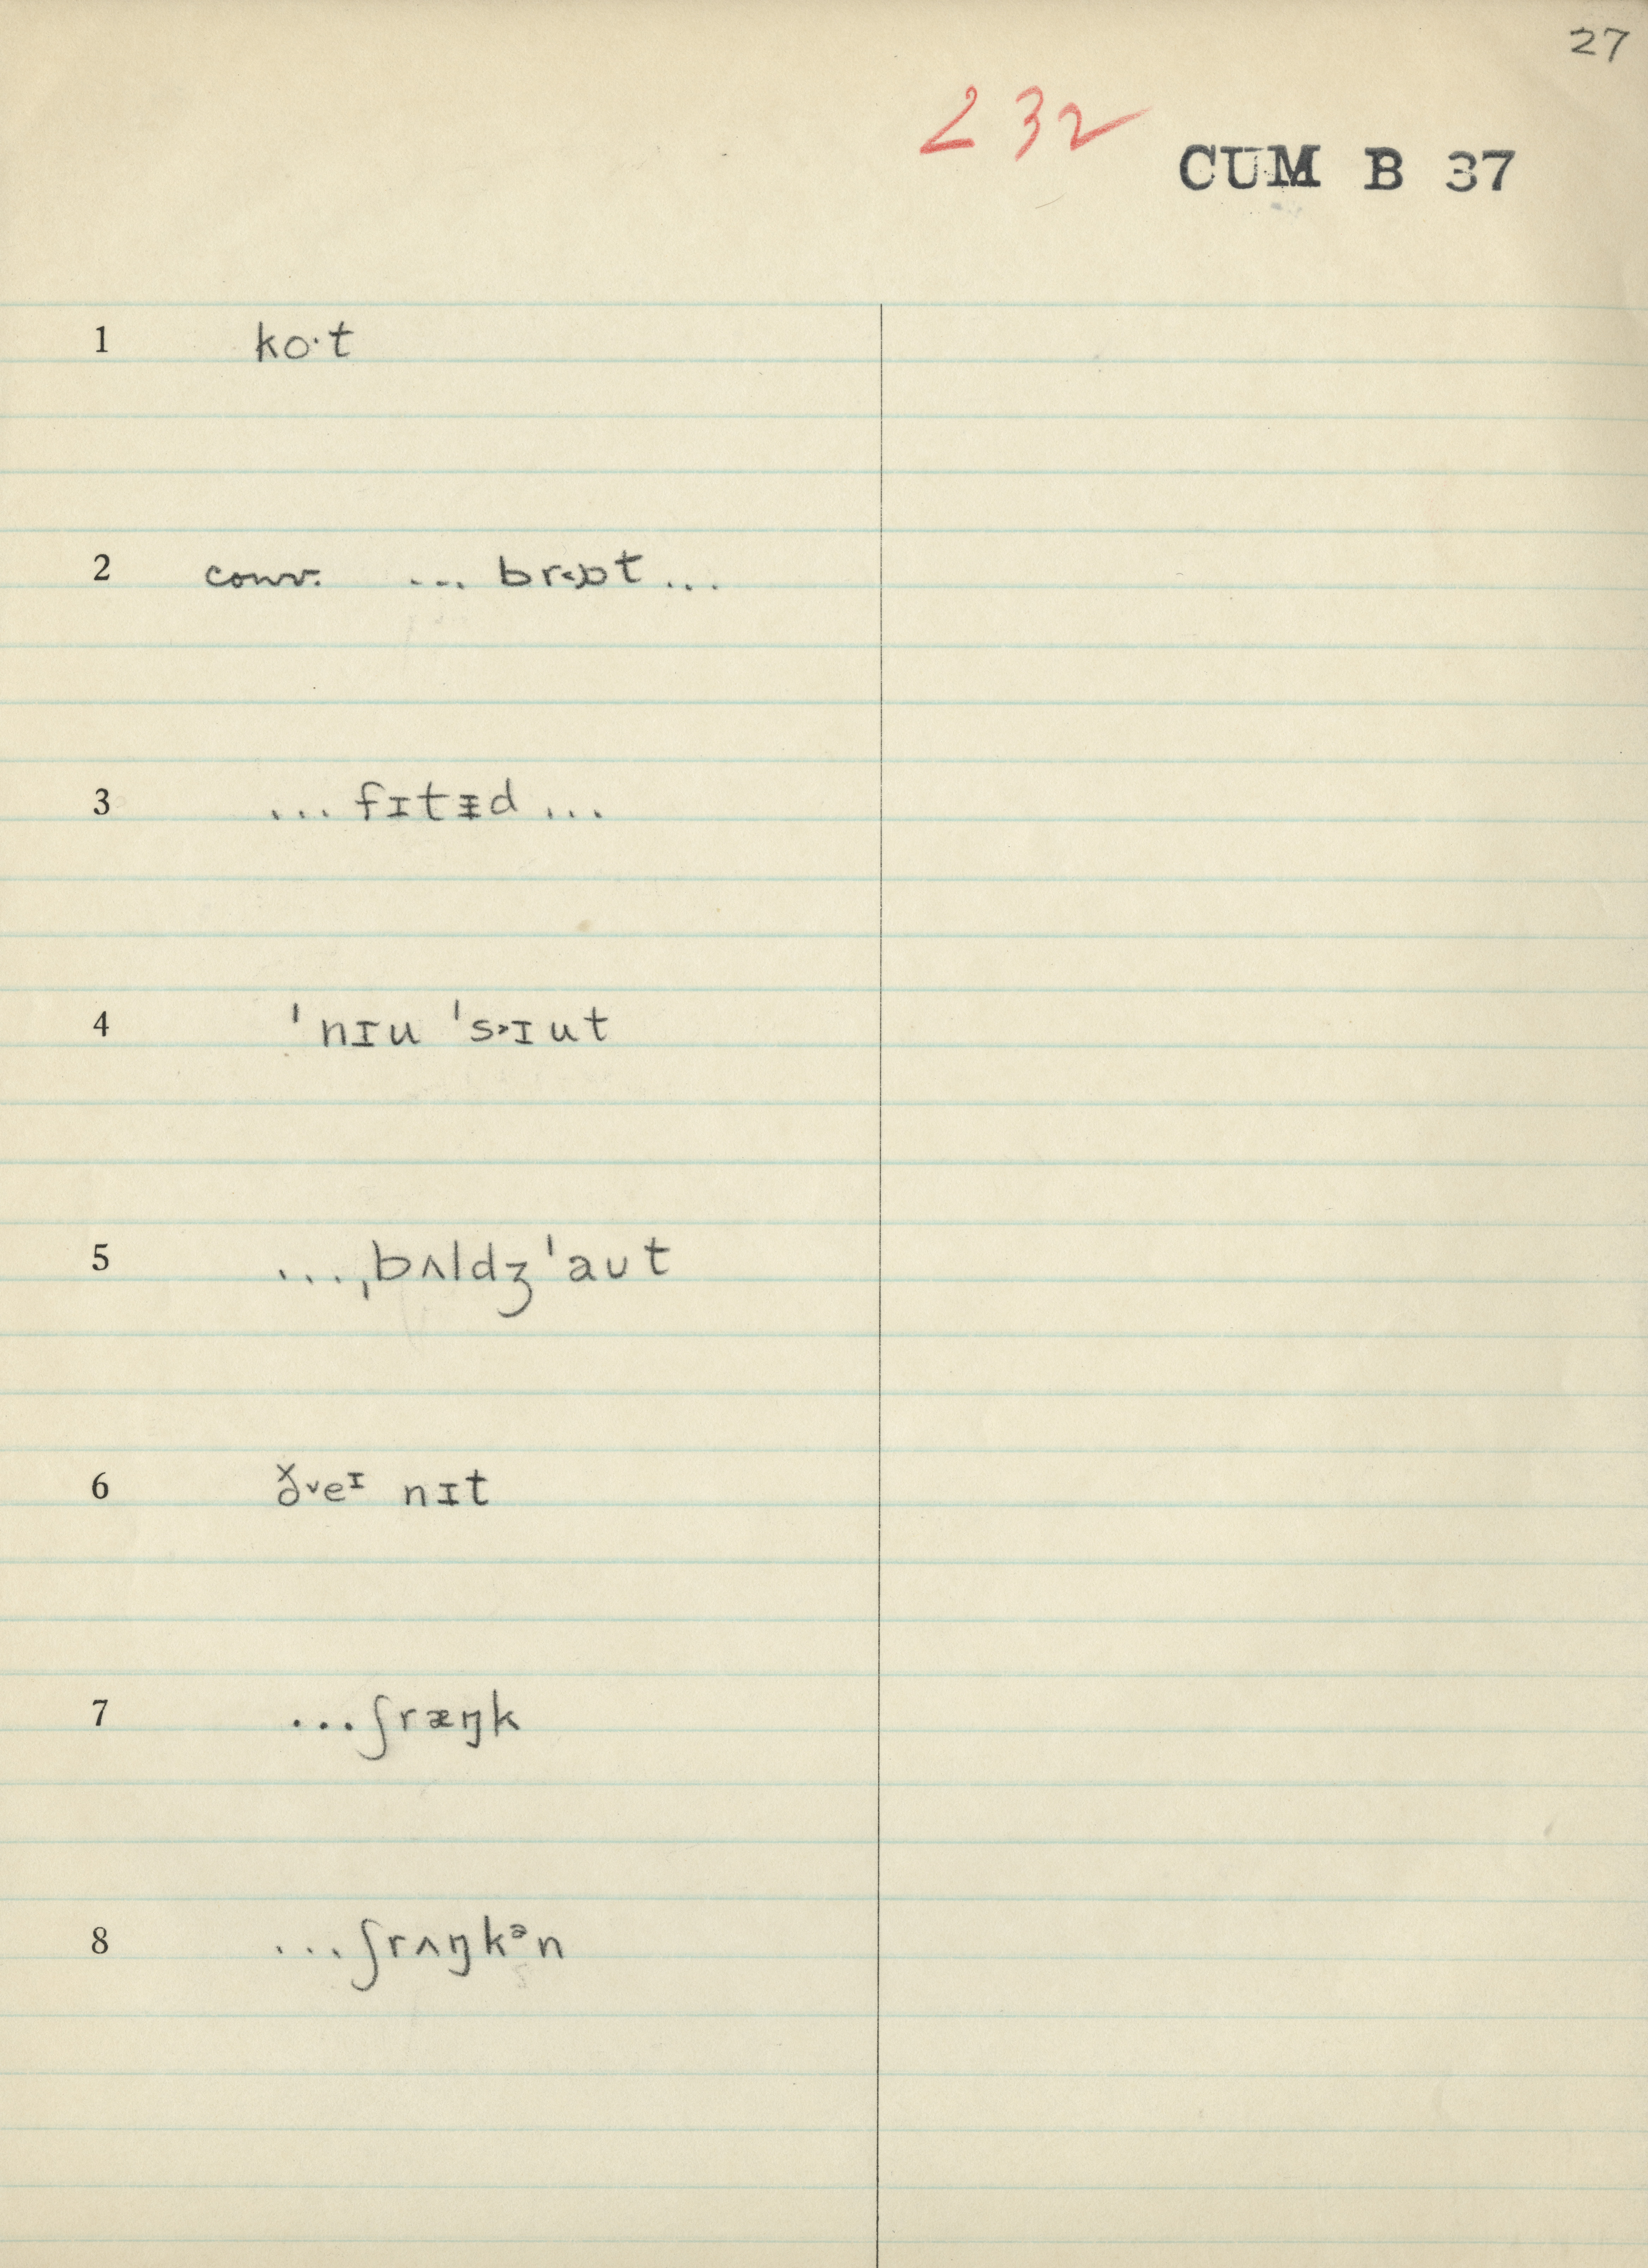 27
232
CUM B 37
1 ko·t
2 conv. ... br˂ɒt ...
3 ... fɪtᵻd ...
4 ˈnɪu ˈs˃ɪut
5 ...ˌbʌldʒˈaʊt
6 ðˇeᶦ nɪt
7 ...ʃræŋk
8 ...ʃrʌŋkᵊn